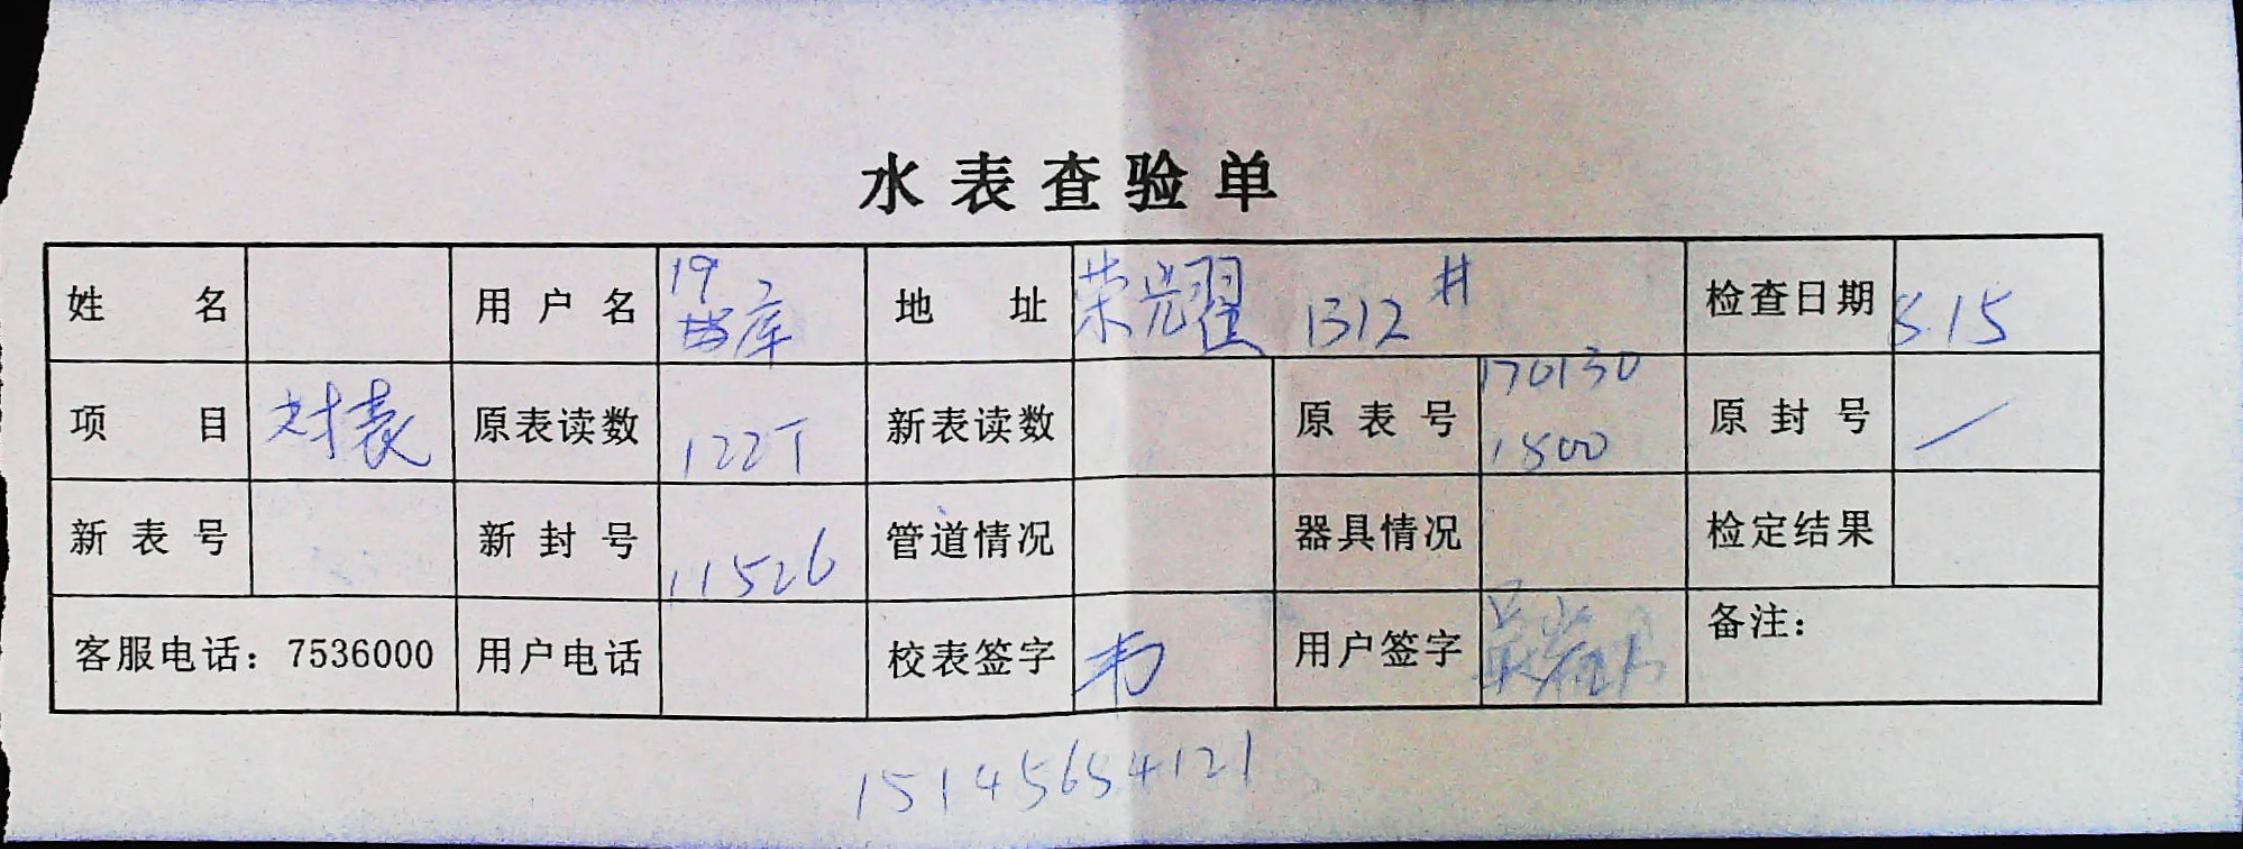 水表查验单
姓 名 用户名 19 库 地 址 荣光耀 1312# 检查日期 8.15
项 目 对表 原表读数 122T 新表读数 原表号 170130 1800 原封号 /
新表号 新封号 11526 管道情况 器具情况 检定结果
客服电话：7536000 用户电话 校表签字 韦 用户签字 备注：
15145654121